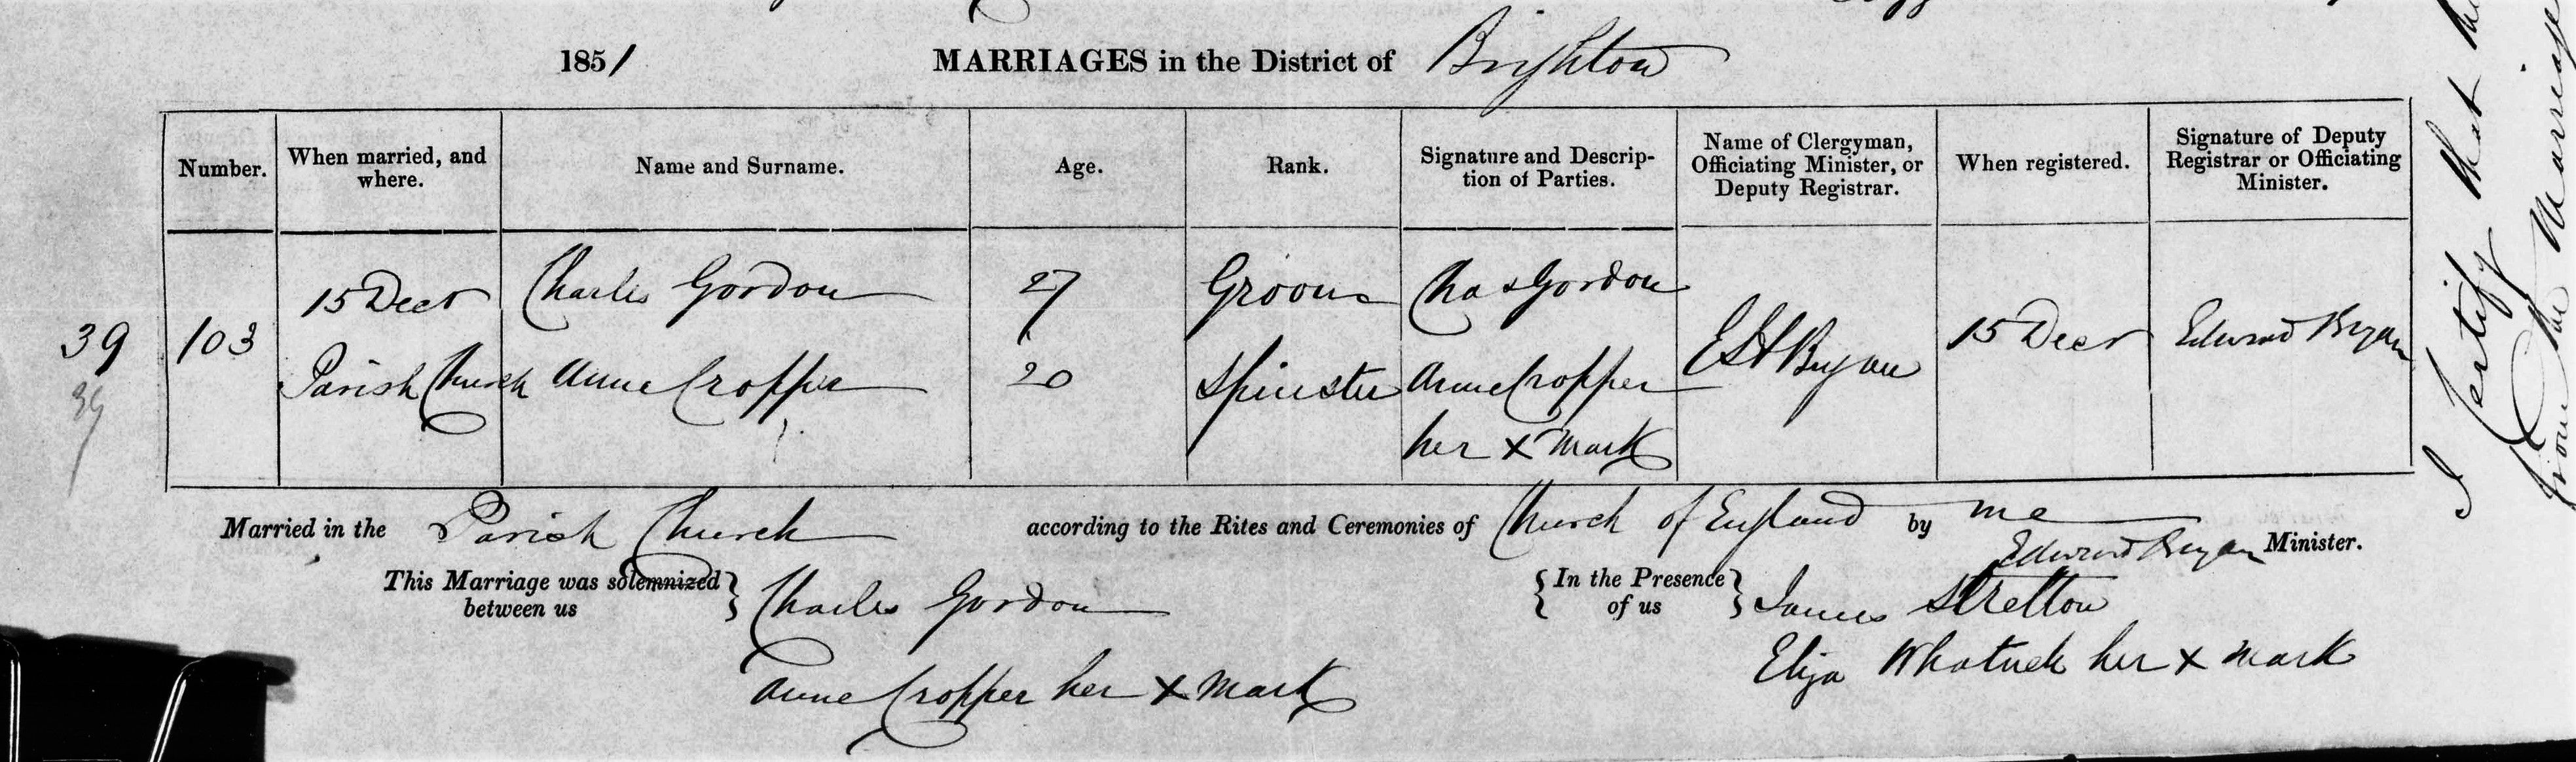 1851 MARRIAGES in the District of Brighton
Number. When married, and where. Name and Surname. Age. Rank. Signature and Description of Parties. Name of Clergyman, Officiating Minister, or Deputy Registrar. When registered. Signature of Deputy Registrar or Officiating Minister.
39 103 15 Decr Charles Gordon 27 Groom Chas Gordon E H Bryan 15 Decr Edward Bryan
39 Parish Church Anne Cropper 20 Spinster Anne Cropper
her X mark
Married in the Parish Church according to the Rites and Ceremonies of Church of England by me
Edward Bryan Minister.
This Marriage was solemnized between us Charles Gordon In the Presence of us James Stretton
Anne Cropper her X mark Eliza her X mark
I Certify that
from the Marriage